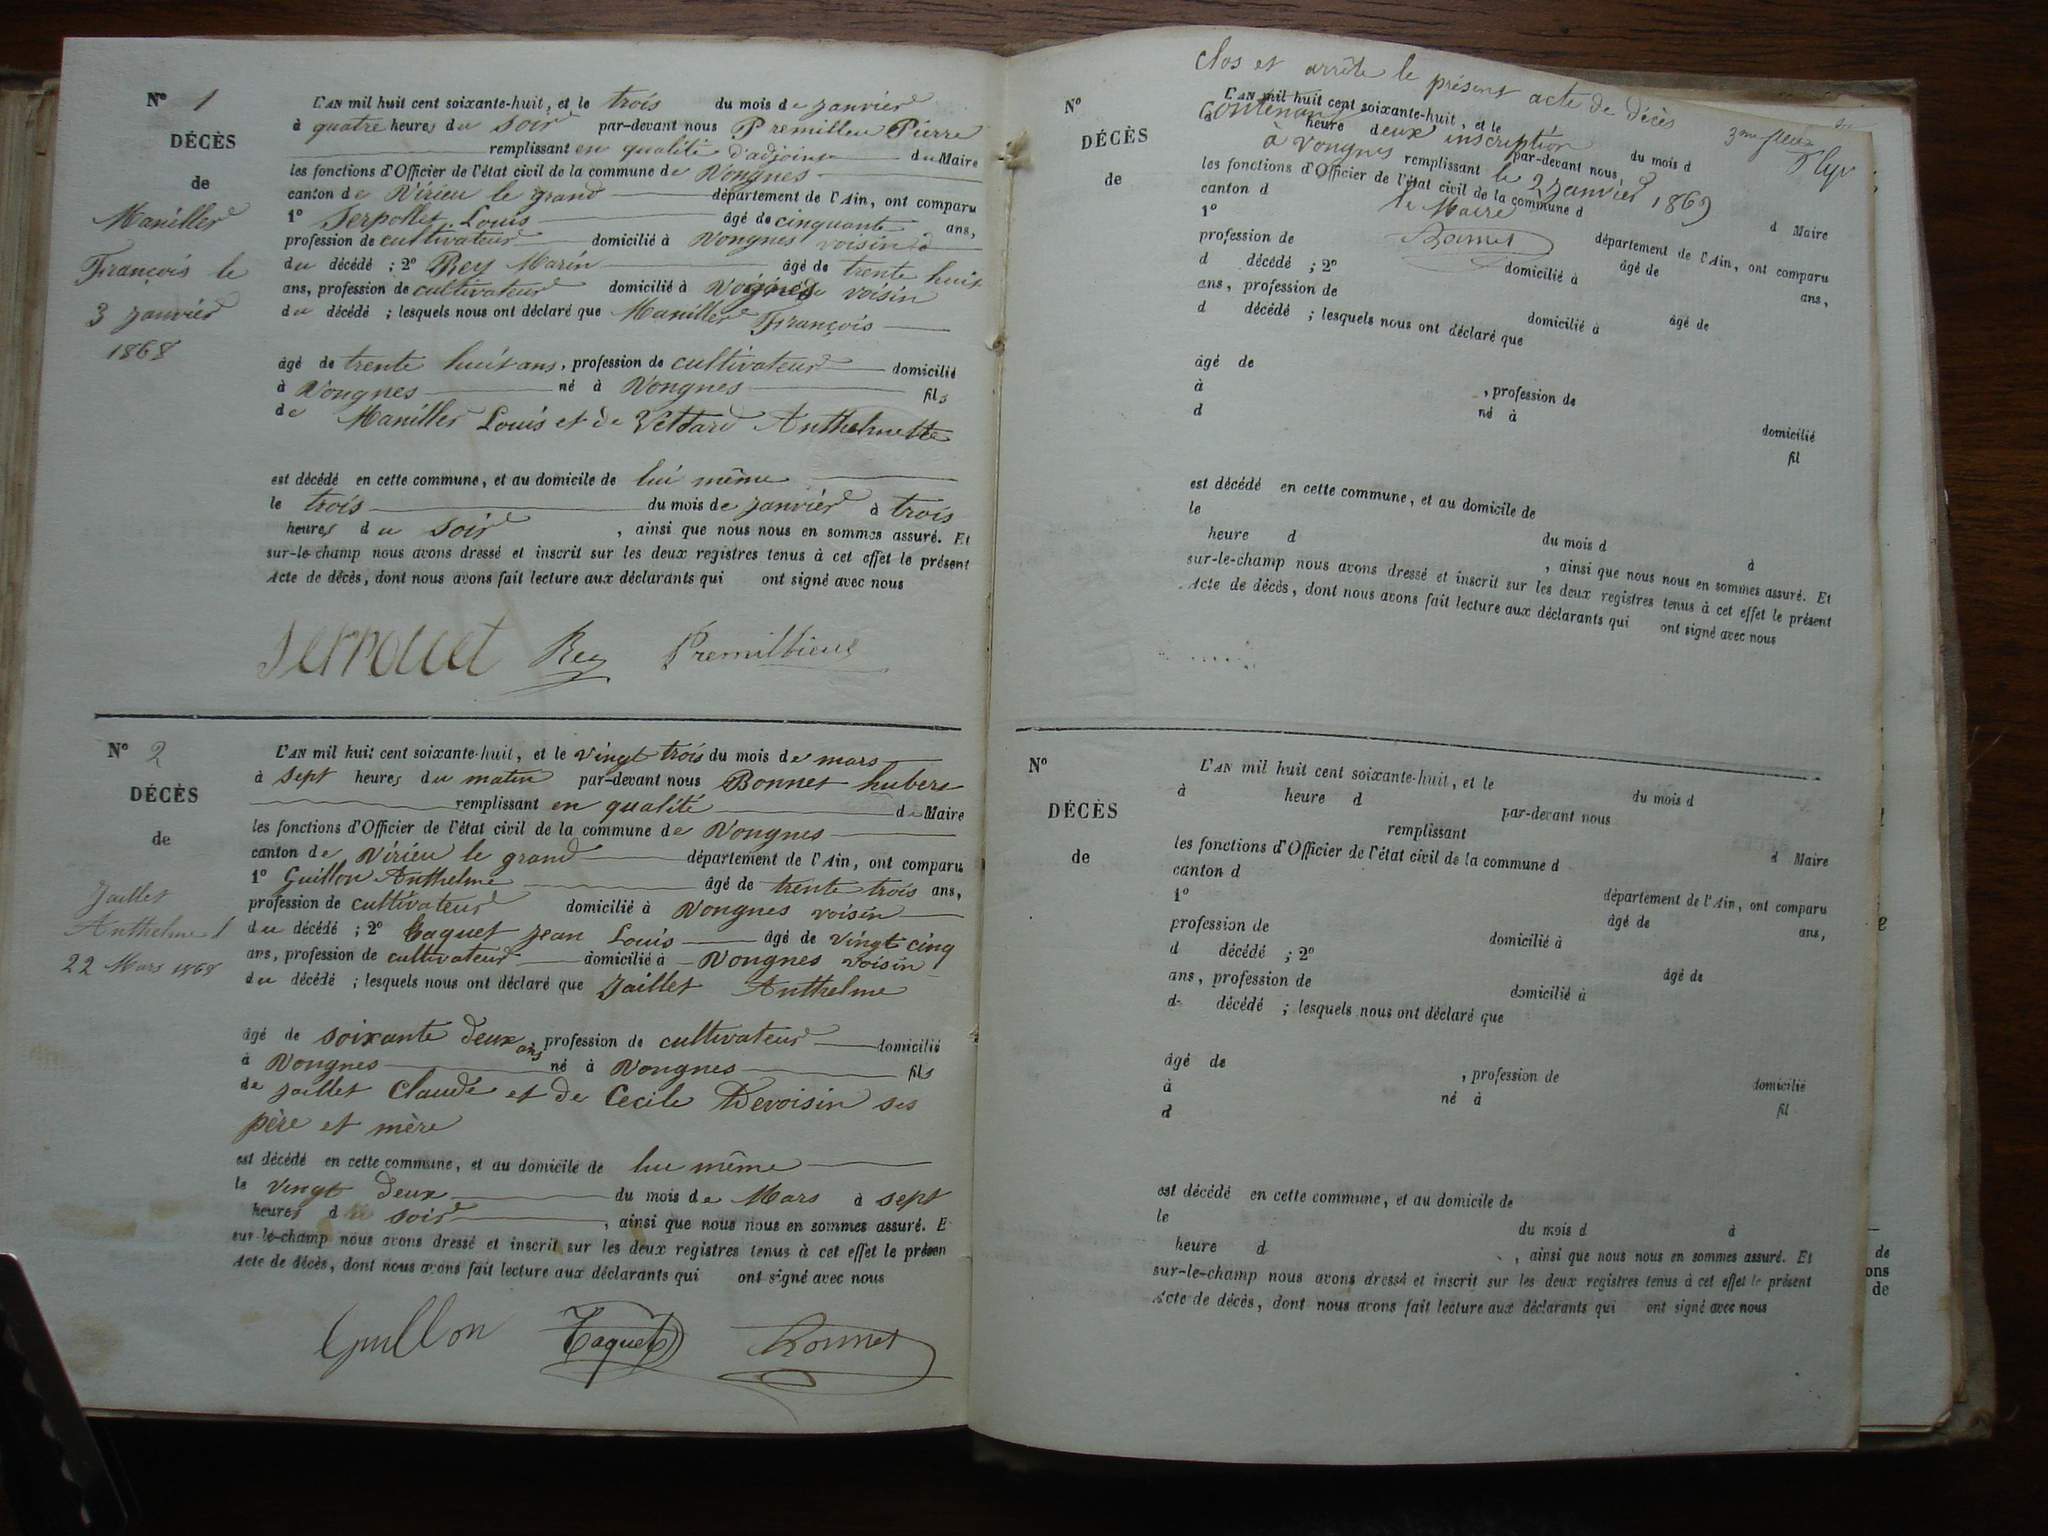 Nº 1
DÉCÈS
de
Maniller
François le
3 janvier
1868
L'AN mil huit cent soixante-huit, et le trois du mois de janvier
à quatre heures du soir par-devant nous Premillieu Pierre
remplissant en qualité d'adjoint du Maire
les fonctions d'Officier de l'état civil de la commune de Vongnes
canton de Virieu le grand département de l'Ain, ont comparu
1º Serpollet Louis âgé de cinquante ans,
profession de cultivateur domicilié à Vongnes voisin
du décédé ; 2º Rey Marin âgé de trente huit
ans, profession de cultivateur domicilié à Vongnes voisin
du décédé ; lesquels nous ont déclaré que Maniller François
âgé de trente huit ans, profession de cultivateur domicilié
à Vongnes né à Vongnes fils
de Maniller Louis et de Anthelmette
est décédé en cette commune, et au domicile de lui même
le trois du mois de janvier à trois
heures du soir , ainsi que nous nous en sommes assuré. Et
sur-le-champ nous avons dressé et inscrit sur les deux registres tenus à cet effet le présent
Acte de décès, dont nous avons fait lecture aux déclarants qui ont signé avec nous
Rey Premillieux
Nº 2
DÉCÈS
de
Jaillet
Anthelme l
22 Mars 1868
L'AN mil huit cent soixante-huit, et le vingt trois du mois de mars
à sept heures du matin par-devant nous Bonnet hubert
remplissant en qualité de Maire
les fonctions d'Officier de l'état civil de la commune de Vongnes
canton de Virieu le grand département de l'Ain, ont comparu
1º Guillon Anthelme âgé de trente trois ans,
profession de cultivateur domicilié à Vongnes voisin
du décédé ; 2º Taquet jean Louis âgé de vingt cinq
ans, profession de cultivateur domicilié à Vongnes voisin
du décédé ; lesquels nous ont déclaré que Jaillet Anthelme
âgé de soixante deux ans, profession de cultivateur domicilié
à Vongnes né à Vongnes fils
de jaillet Claude et de Cecile Devoisin ses
père et mère
est décédé en cette commune, et au domicile de lui même
le vingt deux du mois de Mars à sept
heures du soir , ainsi que nous nous en sommes assuré. E
sur-le-champ nous avons dressé et inscrit sur les deux registres tenus à cet effet le présen
Acte de décès, dont nous avons fait lecture aux déclarants qui ont signé avec nous
Guillon Taquet Bonnet
Clos et arrêté le présent acte de décès
contenant deux inscription
à Vongnes le 2 janvier 1869
le Maire
Bonnet
3me
Nº
DÉCÈS
de
L'AN mil huit cent soixante-huit, et le du mois d
à heure d par-devant nous,
remplissant d Maire
les fonctions d'Officier de l'état civil de la commune d
canton d département de l'Ain, ont comparu
1º âgé de ans,
profession de domicilié à
d décédé ; 2º âgé de
ans, profession de domicilié à
d décédé ; lesquels nous ont déclaré que
âgé de , profession de domicilié
à né à fil
d
est décédé en cette commune, et au domicile de
le du mois d à
heure d , ainsi que nous nous en sommes assuré. Et
sur-le-champ nous avons dressé et inscrit sur les deux registres tenus à cet effet le présent
Acte de décès, dont nous avons fait lecture aux déclarants qui ont signé avec nous
Nº
DÉCÈS
de
L'AN mil huit cent soixante-huit, et le du mois d
à heure d par-devant nous
remplissant d Maire
les fonctions d'Officier de l'état civil de la commune d
canton d département de l'Ain, ont comparu
1º âgé de ans,
profession de domicilié à
d décédé ; 2º âgé de
ans, profession de domicilié à
d décédé ; lesquels nous ont déclaré que
âgé de , profession de domicilié
à né à fil
d
est décédé en cette commune, et au domicile de
le du mois d à
heure d , ainsi que nous nous en sommes assuré. Et
sur-le-champ nous avons dressé et inscrit sur les deux registres tenus à cet effet le présent
Acte de décès, dont nous avons fait lecture aux déclarants qui ont signé avec nous
de
ons
de